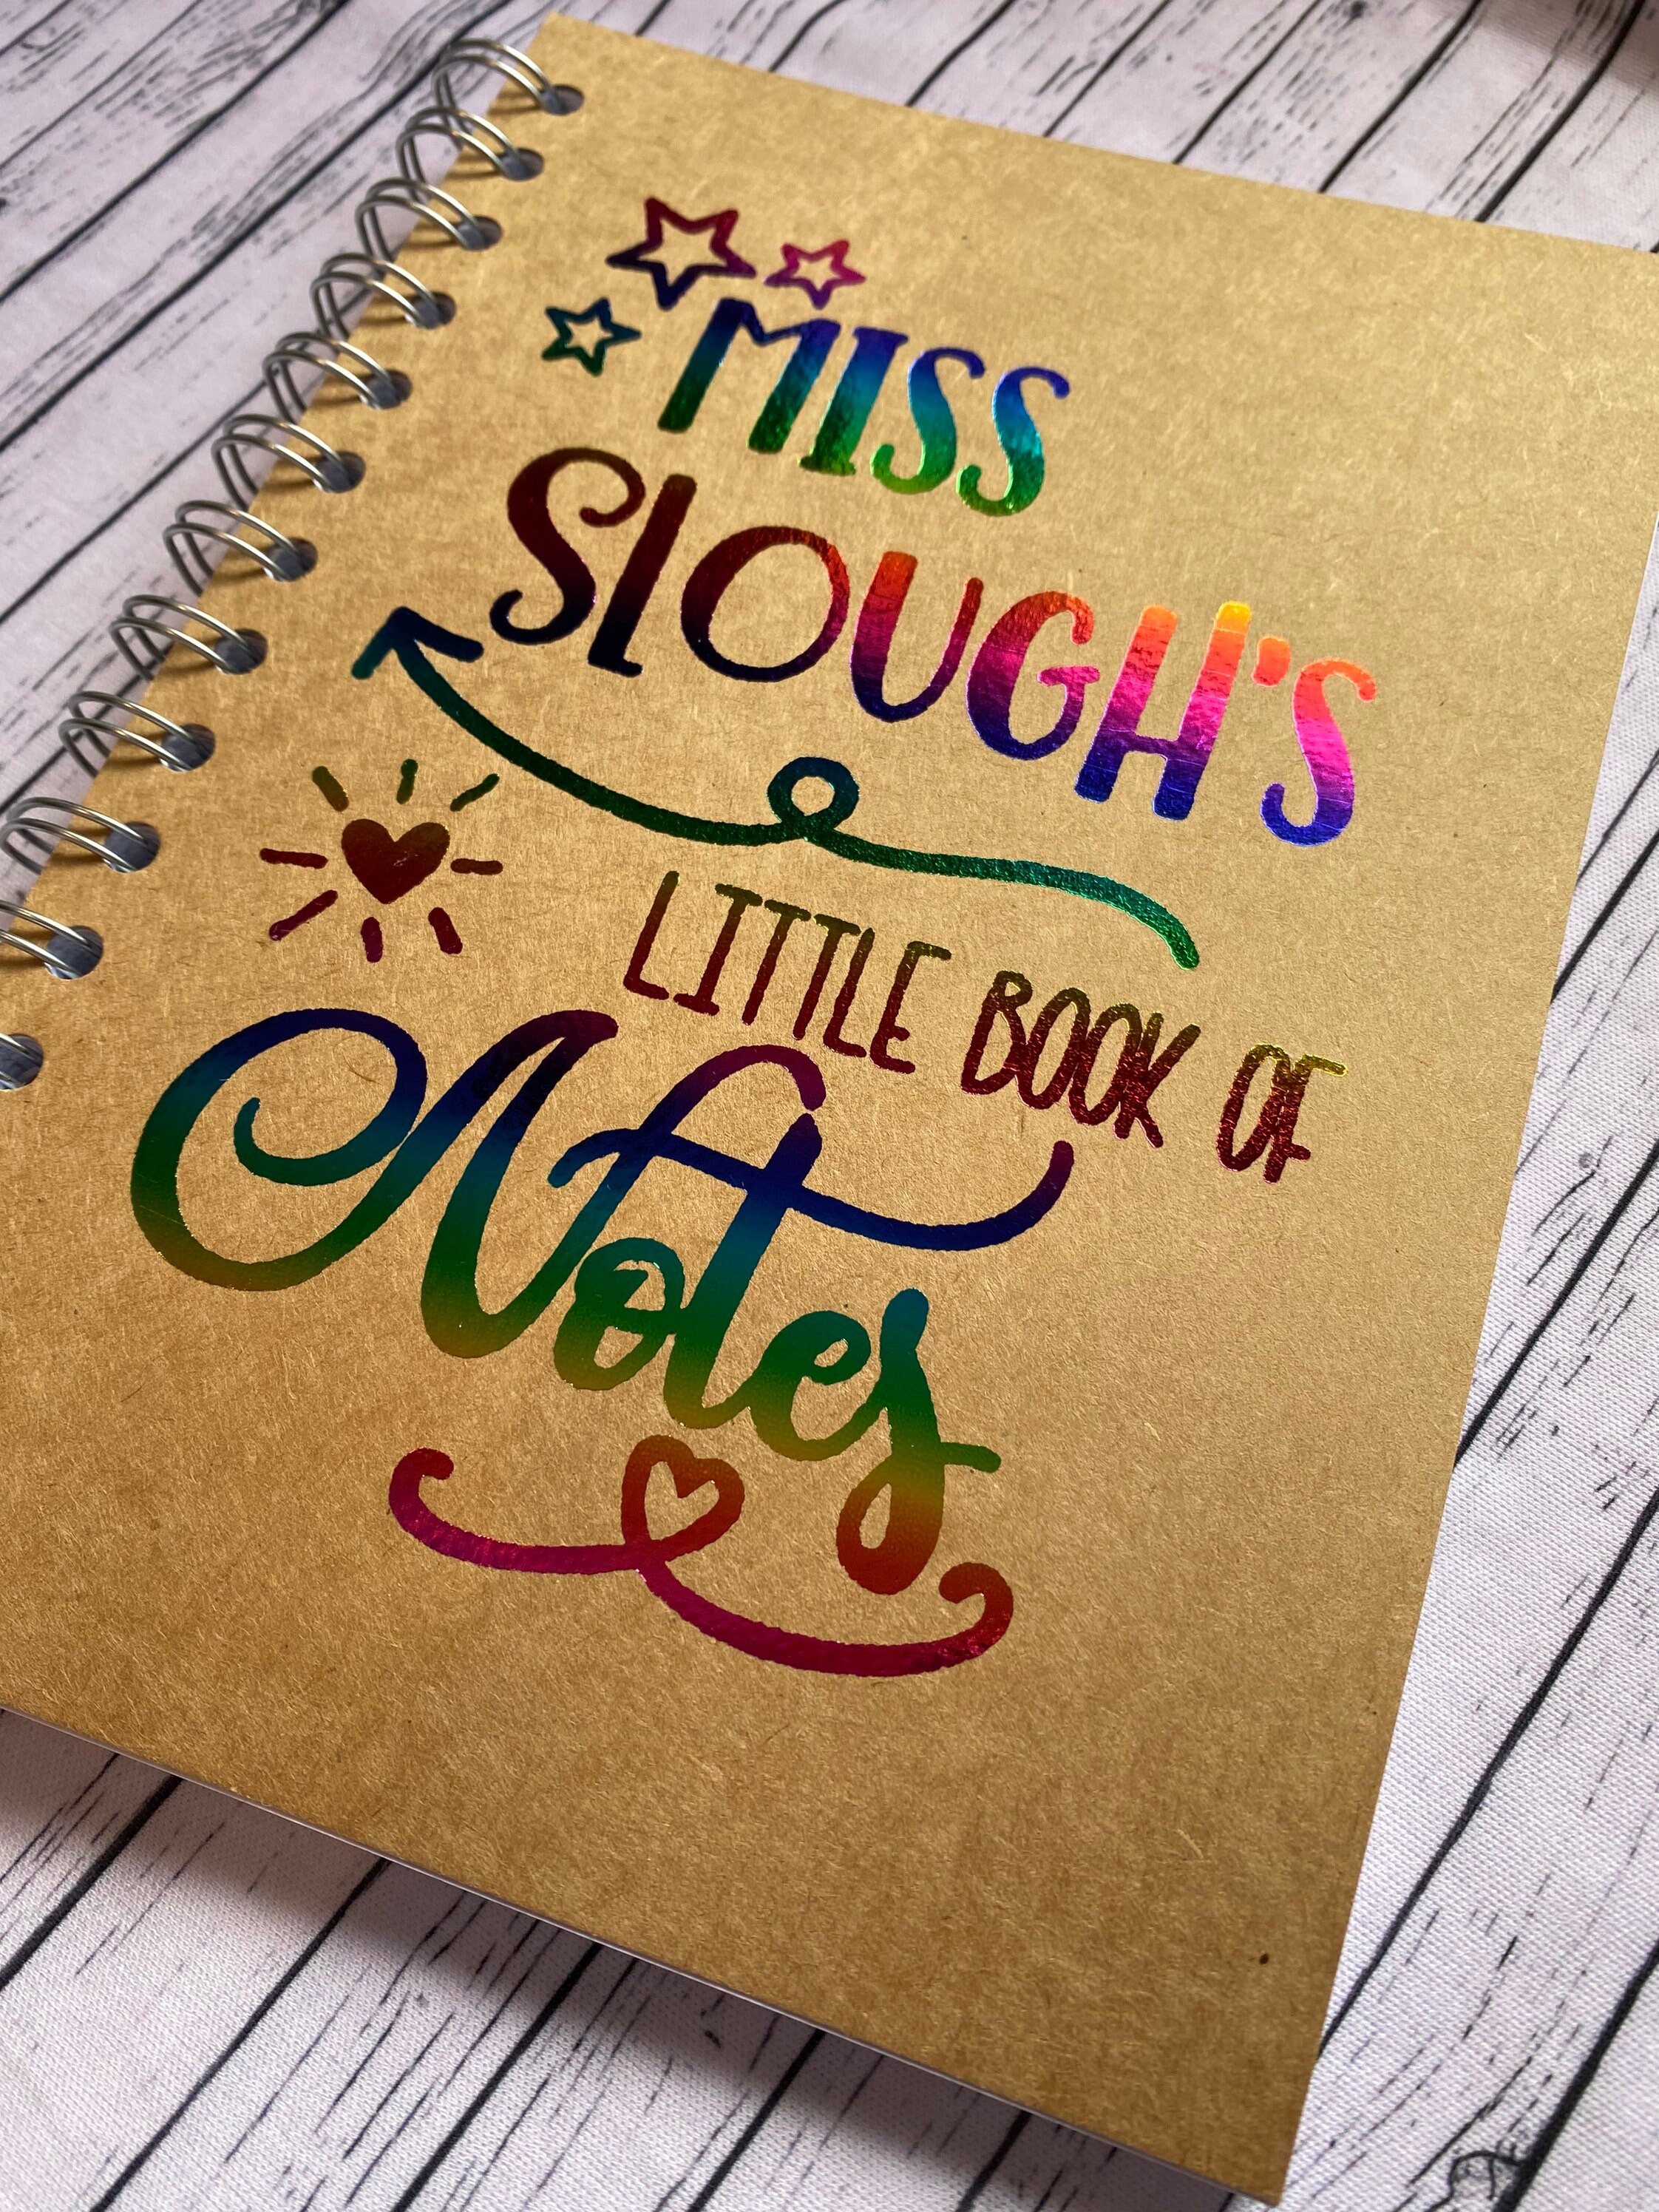 MISS
SlOUGH'S
LITTLE BOOK OF
Notes